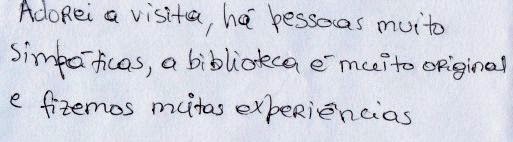 Adorei a visita, há pessoas muito
simpáticas, a biblioteca é muito original
e fizemos muitas experiências